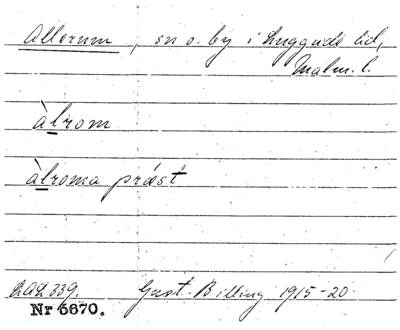 Allerum, sn o. by i Luggude hd,
Malm. l.
àlrom
àlroma präst
LAL 339. Gust. Billing 1915-20.
Nr 6670.